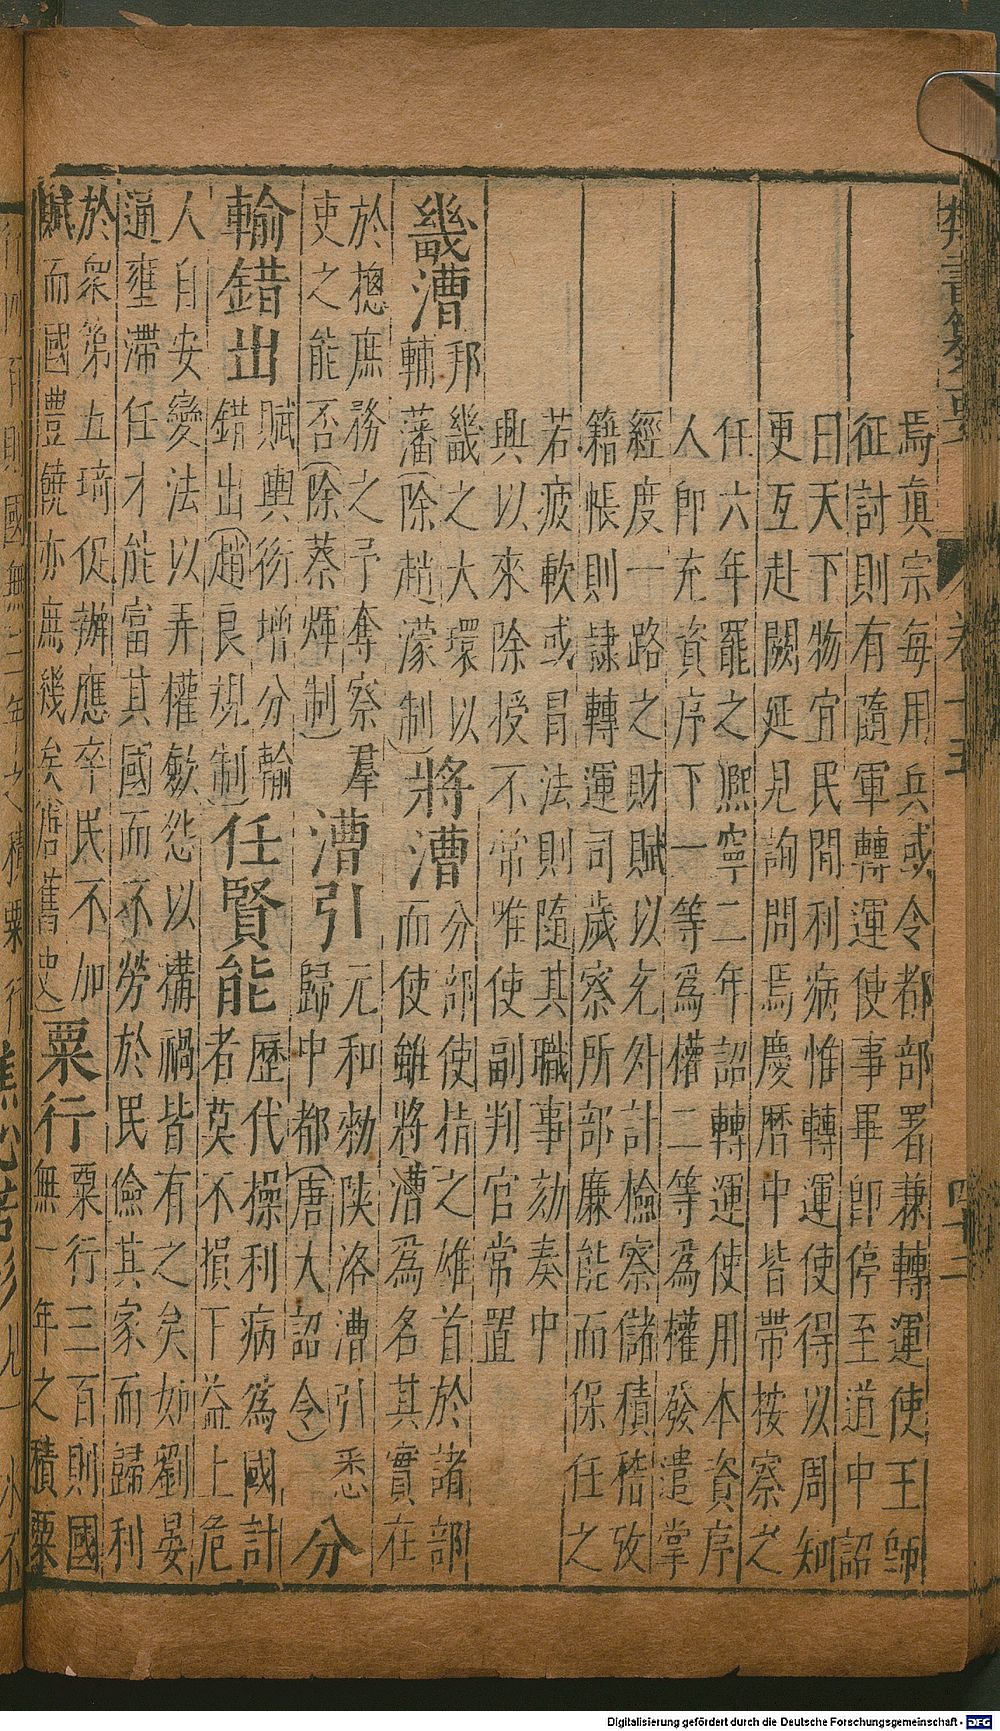 焉眞宗每用兵或令都部署兼轉運使王師
征討則有隨軍轉運使事畢即停至道中詔
曰天下物宜民間利病惟轉運使得以周知
更互赴闕延見詢問焉慶曆中皆帶按察之
任六年罷之熈寧二年詔轉運使用本資序
人即充資序下一等爲權二等爲權發遣掌
經度一路之財賦以充外計檢察儲積稽攷
籍帳則隷轉運司歲察所部廉能而保任之
若疲軟或冐法則隨其職事劾奏中
興以來除授不常唯使副判官常置
畿漕
邦畿之大環以
輔藩(除趙濛制)
將漕
分部使指之雄首於諸部
而使雖將漕爲名其實在
於摠庶務之予奪察羣
吏之能否(除蔡煇制)
漕引
元和勑陝洛漕引悉
歸中都(唐大詔令)
分
輸錯出
賦輿銜增分輸
錯出(趙良規制)
任賢能
歷代操利病爲國計
者莫不損下益上危
人自安變法以弄權斂怨以搆禍皆有之矣如劉晏
通壅滯任才能富其國而不勞於民儉其家而歸利
於衆第五琦促辦應卒民不加
賦而國豐饒亦庶幾矣(唐舊史)
粟行
粟行三百則國
無一年之積粟
Digitalisierung gefördert durch die Deutsche Forschungsgemeinschaft - DFG